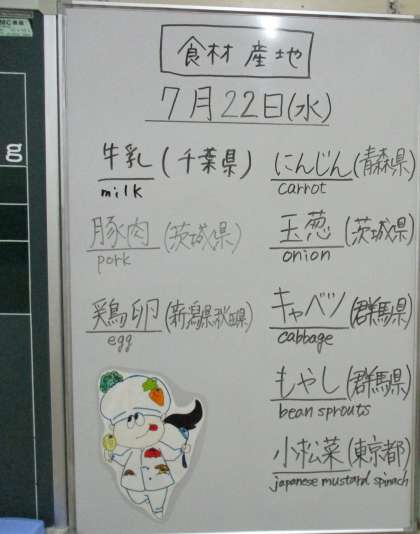 食材 産地
7月22日(水)
牛乳(千葉県)
milk
豚肉(茨城県)
pork
鶏卵(新潟県秋田県)
egg
にんじん(青森県)
carrot
玉葱(茨城県)
onion
キャベツ(群馬県)
cabbage
もやし(群馬県)
bean sprouts
小松菜(東京都)
japanese mustard spinach
g